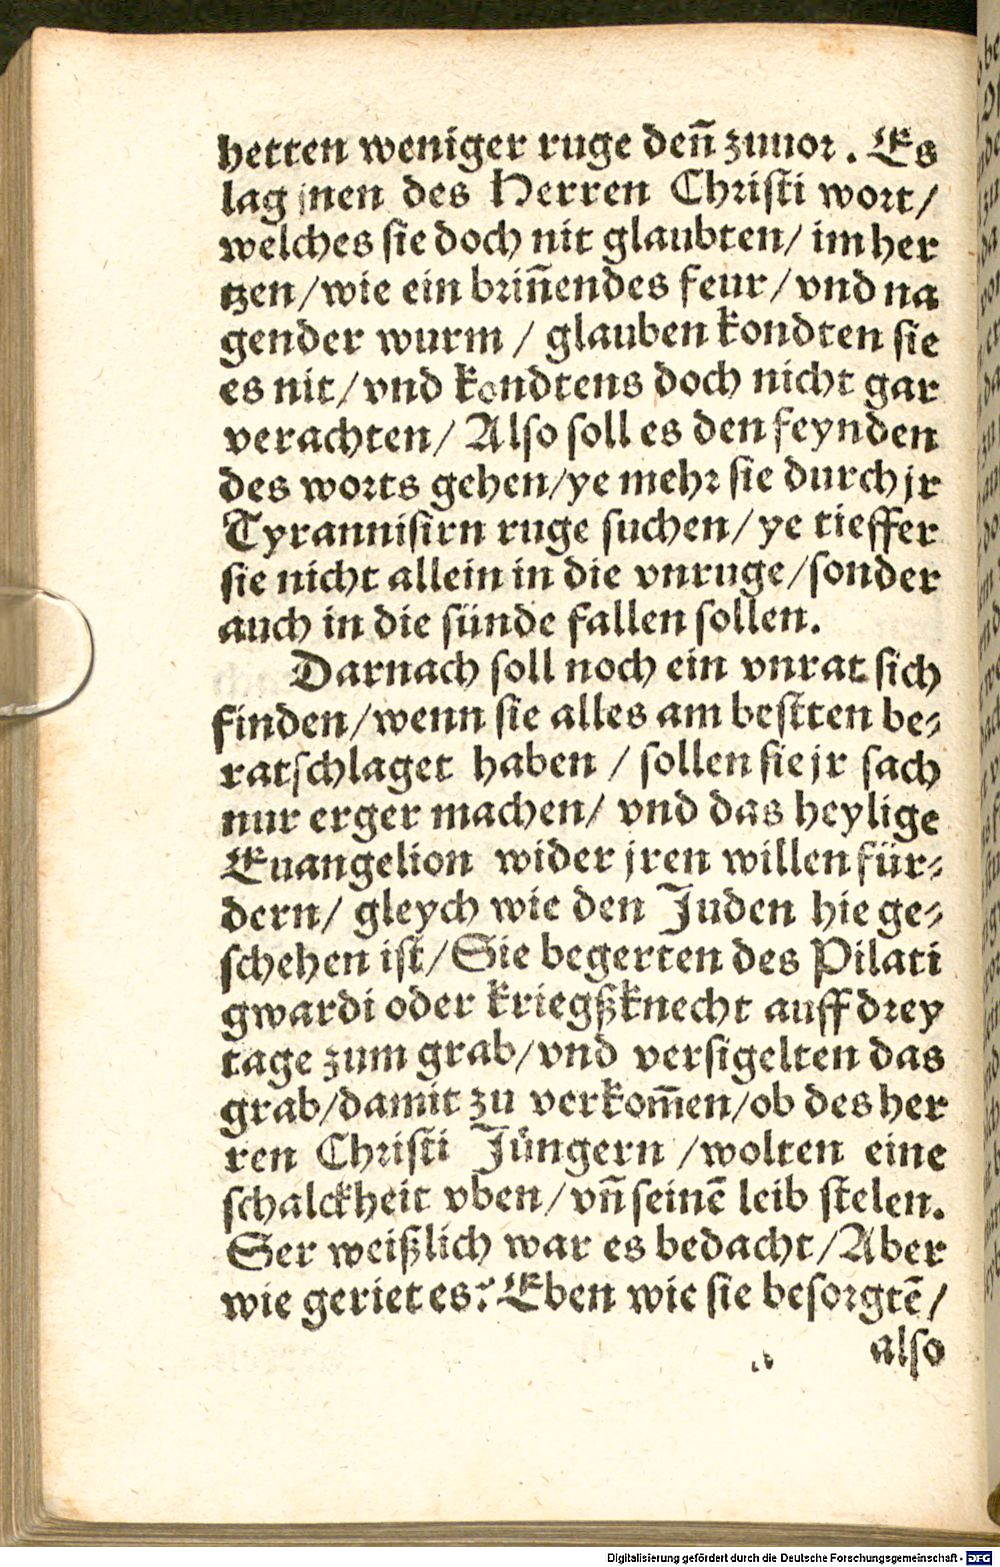 hetten weniger ruge deñ zuuor. Es
lag jnen des Herren Christi wort/
welches sie doch nit glaubten/ im her
tzen/wie ein briñendes feur/vnd na
gender wurm / glauben kondten sie
es nit/vnd kondtens doch nicht gar
verachten/ Also soll es den feynden
des worts gehen/ye mehr sie durch jr
Tyrannisirn ruge suchen/ye tieffer
sie nicht allein in die vnruge/sonder
auch in die sünde fallen sollen.
Darnach soll noch ein vnrat sich
finden/wenn sie alles am bestten be⸗
ratschlaget haben / sollen sie jr sach
nur erger machen/ vnd das heylige
Euangelion wider jren willen für⸗
dern/ gleych wie den Juden hie ge⸗
schehen ist/Sie begerten des Pilati
gwardi oder kriegßknecht auff drey
tage zum grab/vnd versigelten das
grab/damit zu verkom̃en/ob des her
ren Christi Jüngern /wolten eine
schalckheit vben/vñ seinẽ leib stelen.
Ser weißlich war es bedacht/Aber
wie geriet es? Eben wie sie besorgtẽ/
also
Digitalisierung gefördert durch die Deutsche Forschungsgemeinschaft - DFG